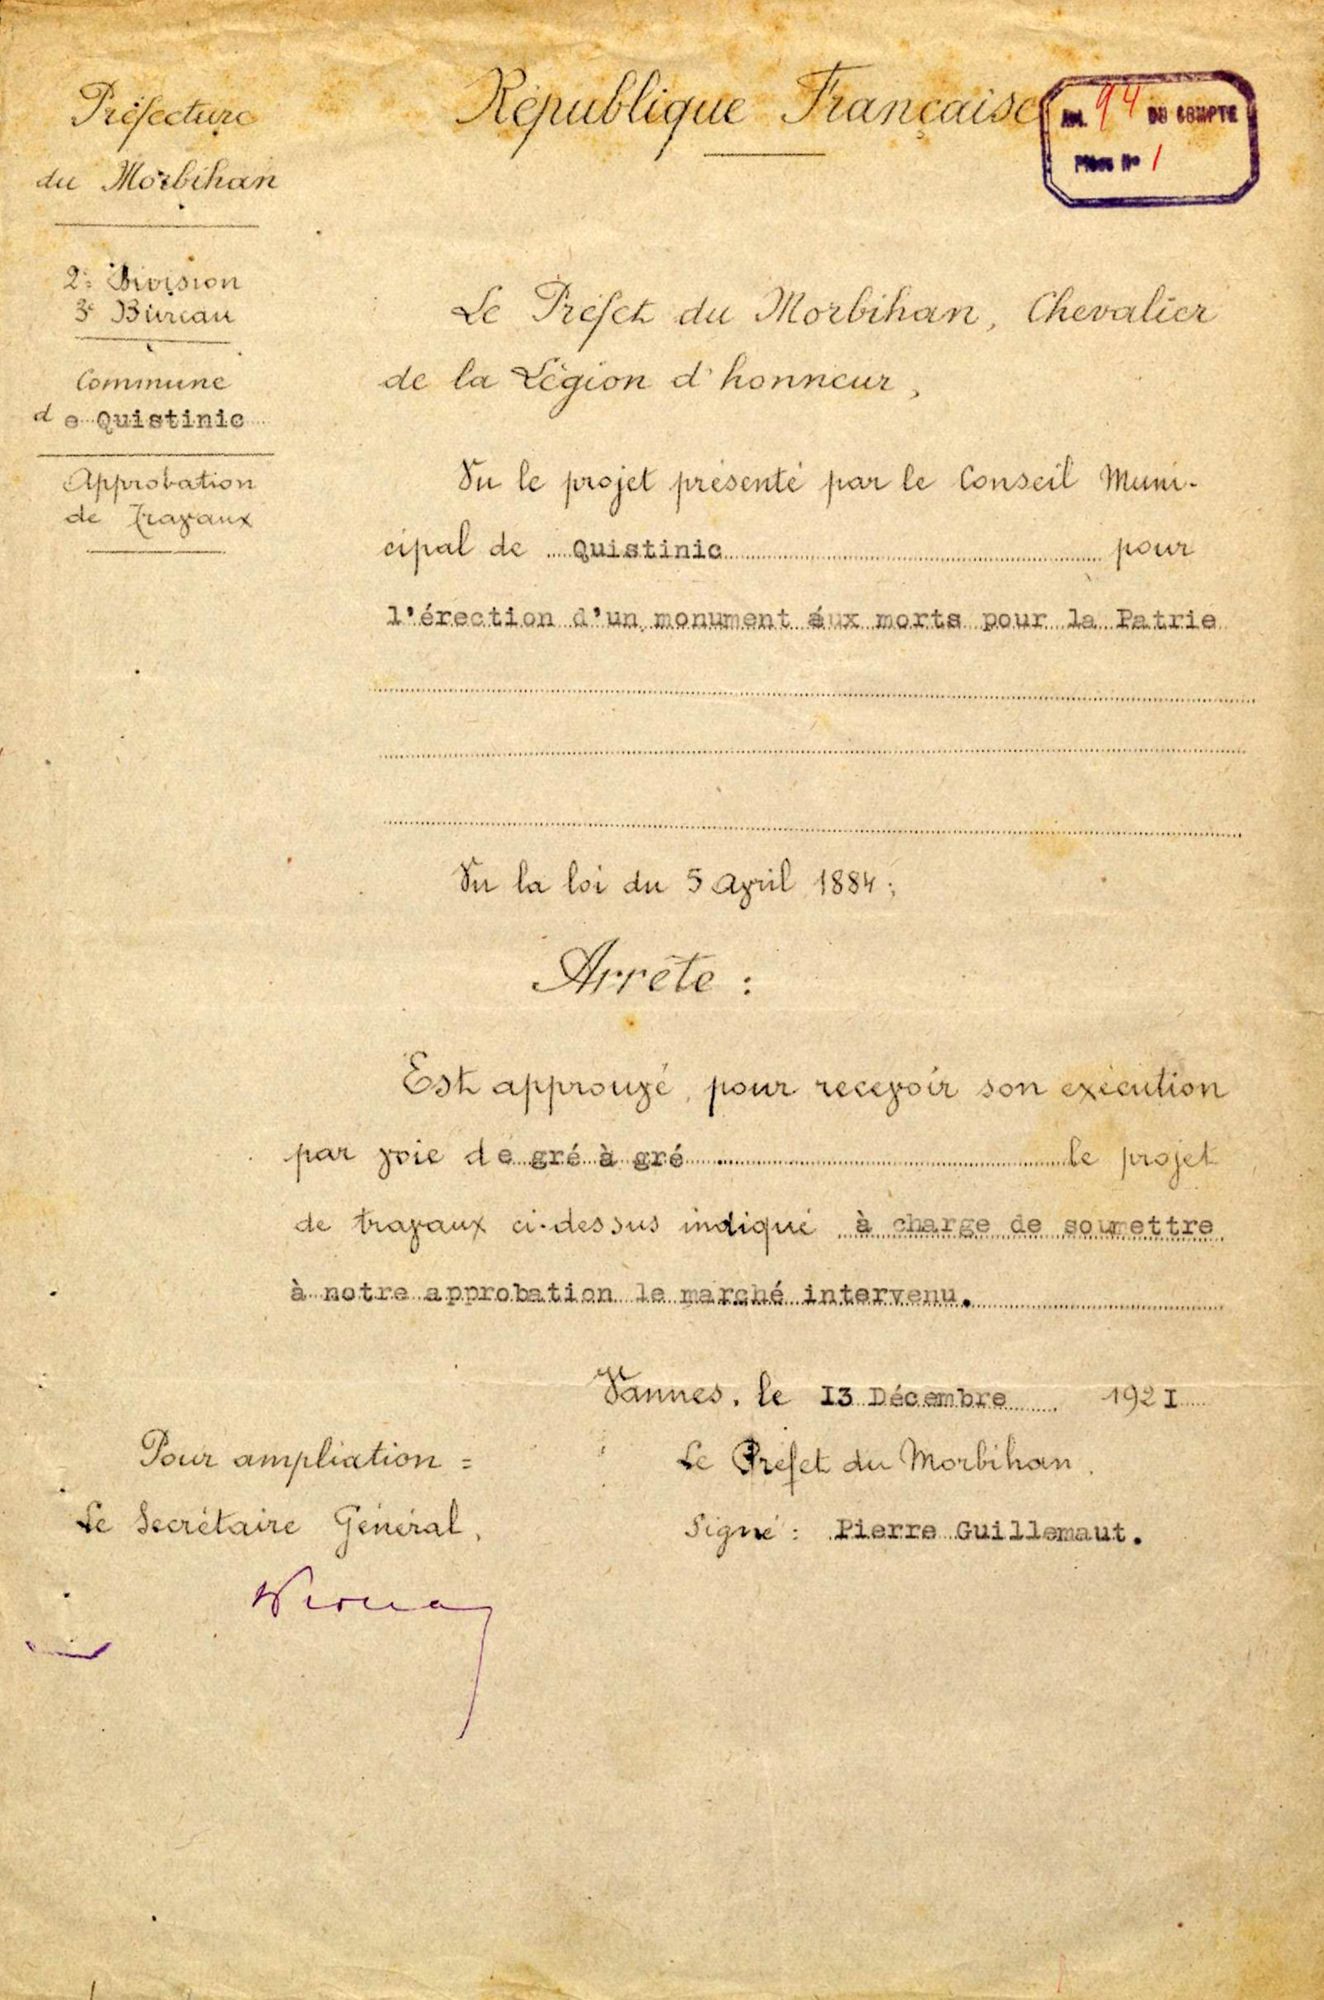 Préfecture
du Morbihan
2e Division
3e Bureau
Commune
de Quistinic
Approbation
de Travaux
République Française
Art. 94 DU COMPTE
Pièce N° 1
Le Préfet du Morbihan, Chevalier
de la Légion d'honneur,
Vu le projet présenté par le Conseil Muni-
cipal de Quistinic pour
l'érection d'un monument áux morts pour la Patrie
Vu la loi du 5 Avril 1884;
Arrête :
Est approuvé, pour recevoir son exécution
par voie de gré à gré le projet
de travaux ci-dessus indiqué à charge de soumettre
à notre approbation le marché intervenu.
Vannes, le I3 Décembre 192I
Le Préfet du Morbihan,
Signé : Pierre Guillemaut.
Pour ampliation =
Le Secrétaire Général,